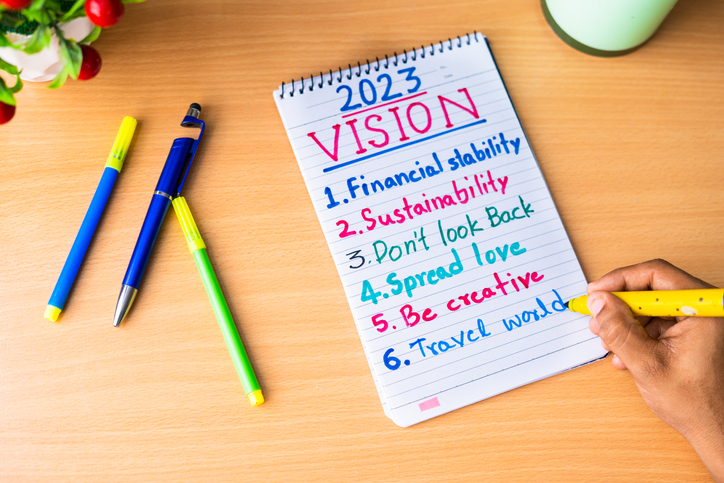 2023
VISION
1. Financial stability
2. Sustainability
3. Don't look Back
4. Spread love
5. Be creative
6. Travel world